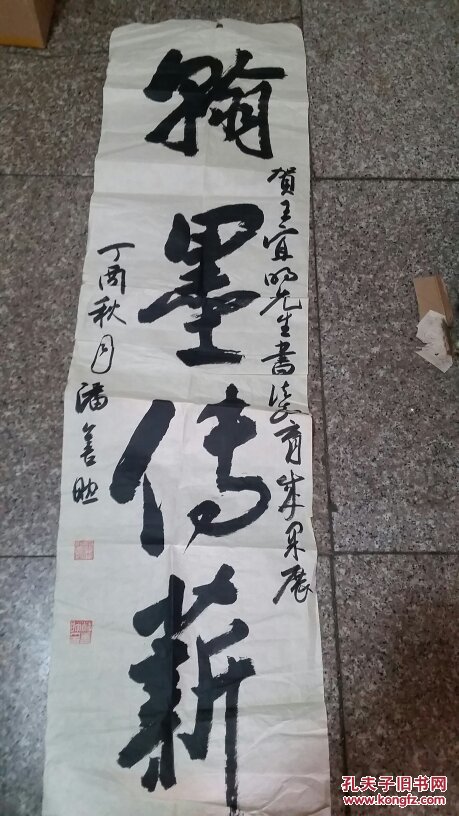 賀王宜明先生書法教育成果展
翰墨傳薪
丁酉秋月潘善助
孔夫子旧书网
www.kongfz.com